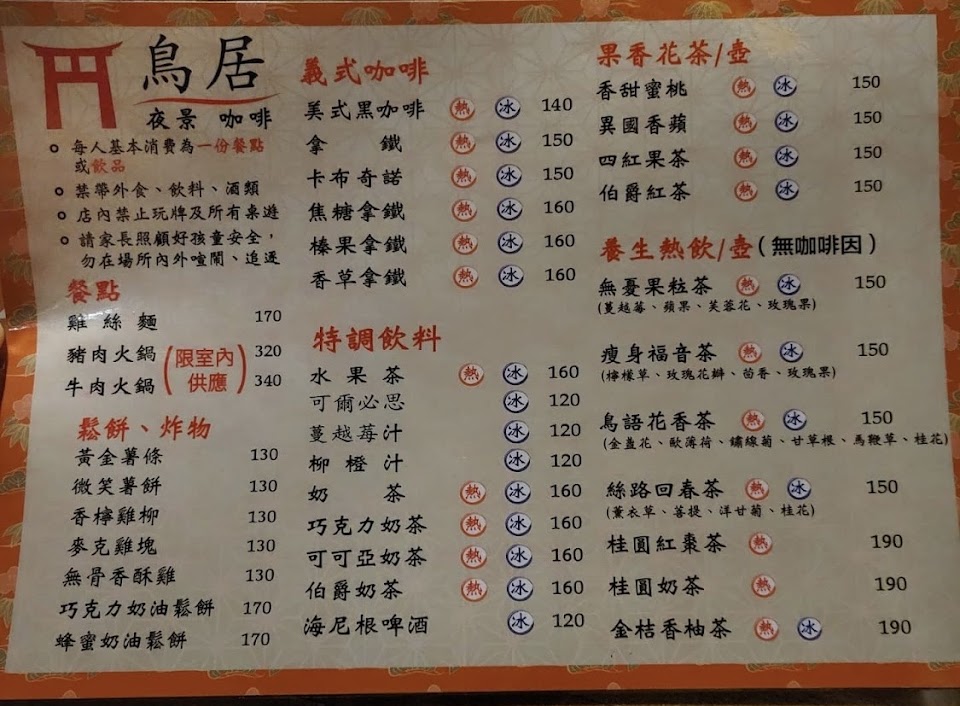 鳥居
夜景 咖啡
每人基本消費為一份餐點
或飲品
禁帶外食、飲料、酒類
店內禁止玩牌及所有桌遊
請家長照顧好孩童安全，
勿在場所內外喧鬧、追逐
餐點
雞絲麵 170
豬肉火鍋 320
牛肉火鍋 340
(限室內
供應)
鬆餅、炸物
黃金薯條 130
微笑薯餅 130
香檸雞柳 130
麥克雞塊 130
無骨香酥雞 130
巧克力奶油鬆餅 170
蜂蜜奶油鬆餅 170
義式咖啡
美式黑咖啡 熱 冰 140
拿鐵 熱 冰 150
卡布奇諾 熱 冰 150
焦糖拿鐵 熱 冰 160
榛果拿鐵 熱 冰 160
香草拿鐵 熱 冰 160
特調飲料
水果茶 熱 冰 160
可爾必思 冰 120
蔓越莓汁 冰 120
柳橙汁 冰 120
奶茶 熱 冰 160
巧克力奶茶 熱 冰 160
可可亞奶茶 熱 冰 160
伯爵奶茶 熱 冰 160
海尼根啤酒 冰 120
果香花茶/壺
香甜蜜桃 熱 冰 150
異國香蘋 熱 冰 150
四紅果茶 熱 冰 150
伯爵紅茶 熱 冰 150
養生熱飲/壺(無咖啡因)
無憂果粒茶 熱 冰 150
(蔓越莓、蘋果、芙蓉花、玫瑰果)
瘦身福音茶 熱 冰 150
(檸檬草、玫瑰花瓣、茴香、玫瑰果)
鳥語花香茶 熱 冰 150
(金盞花、歐薄荷、鏽線菊、甘草根、馬鞭草、桂花)
絲路回春茶 熱 冰 150
(薰衣草、菩提、洋甘菊、桂花)
桂圓紅棗茶 熱 190
桂圓奶茶 熱 190
金桔香柚茶 熱 冰 190